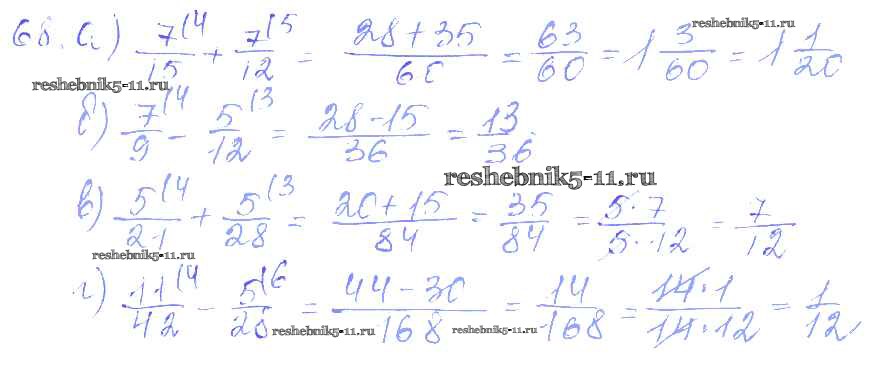 68. а) 7(4/15 + 7(5/12 = 28+35/60 = 63/60 = 1 3/60 = 1 1/20
reshebnik5-11.ru
reshebnik5-11.ru
б) 7(4/9 - 5(3/12 = 28-15/36 = 13/36
reshebnik5-11.ru
в) 5(4/21 + 5(3/28 = 20+15/84 = 35/84 = 5·7/5·12 = 7/12
reshebnik5-11.ru
г) 11(4/42 - 5(6/28 = 44-30/168 = 14/168 = 14·1/14·12 = 1/12
reshebnik5-11.ru
reshebnik5-11.ru